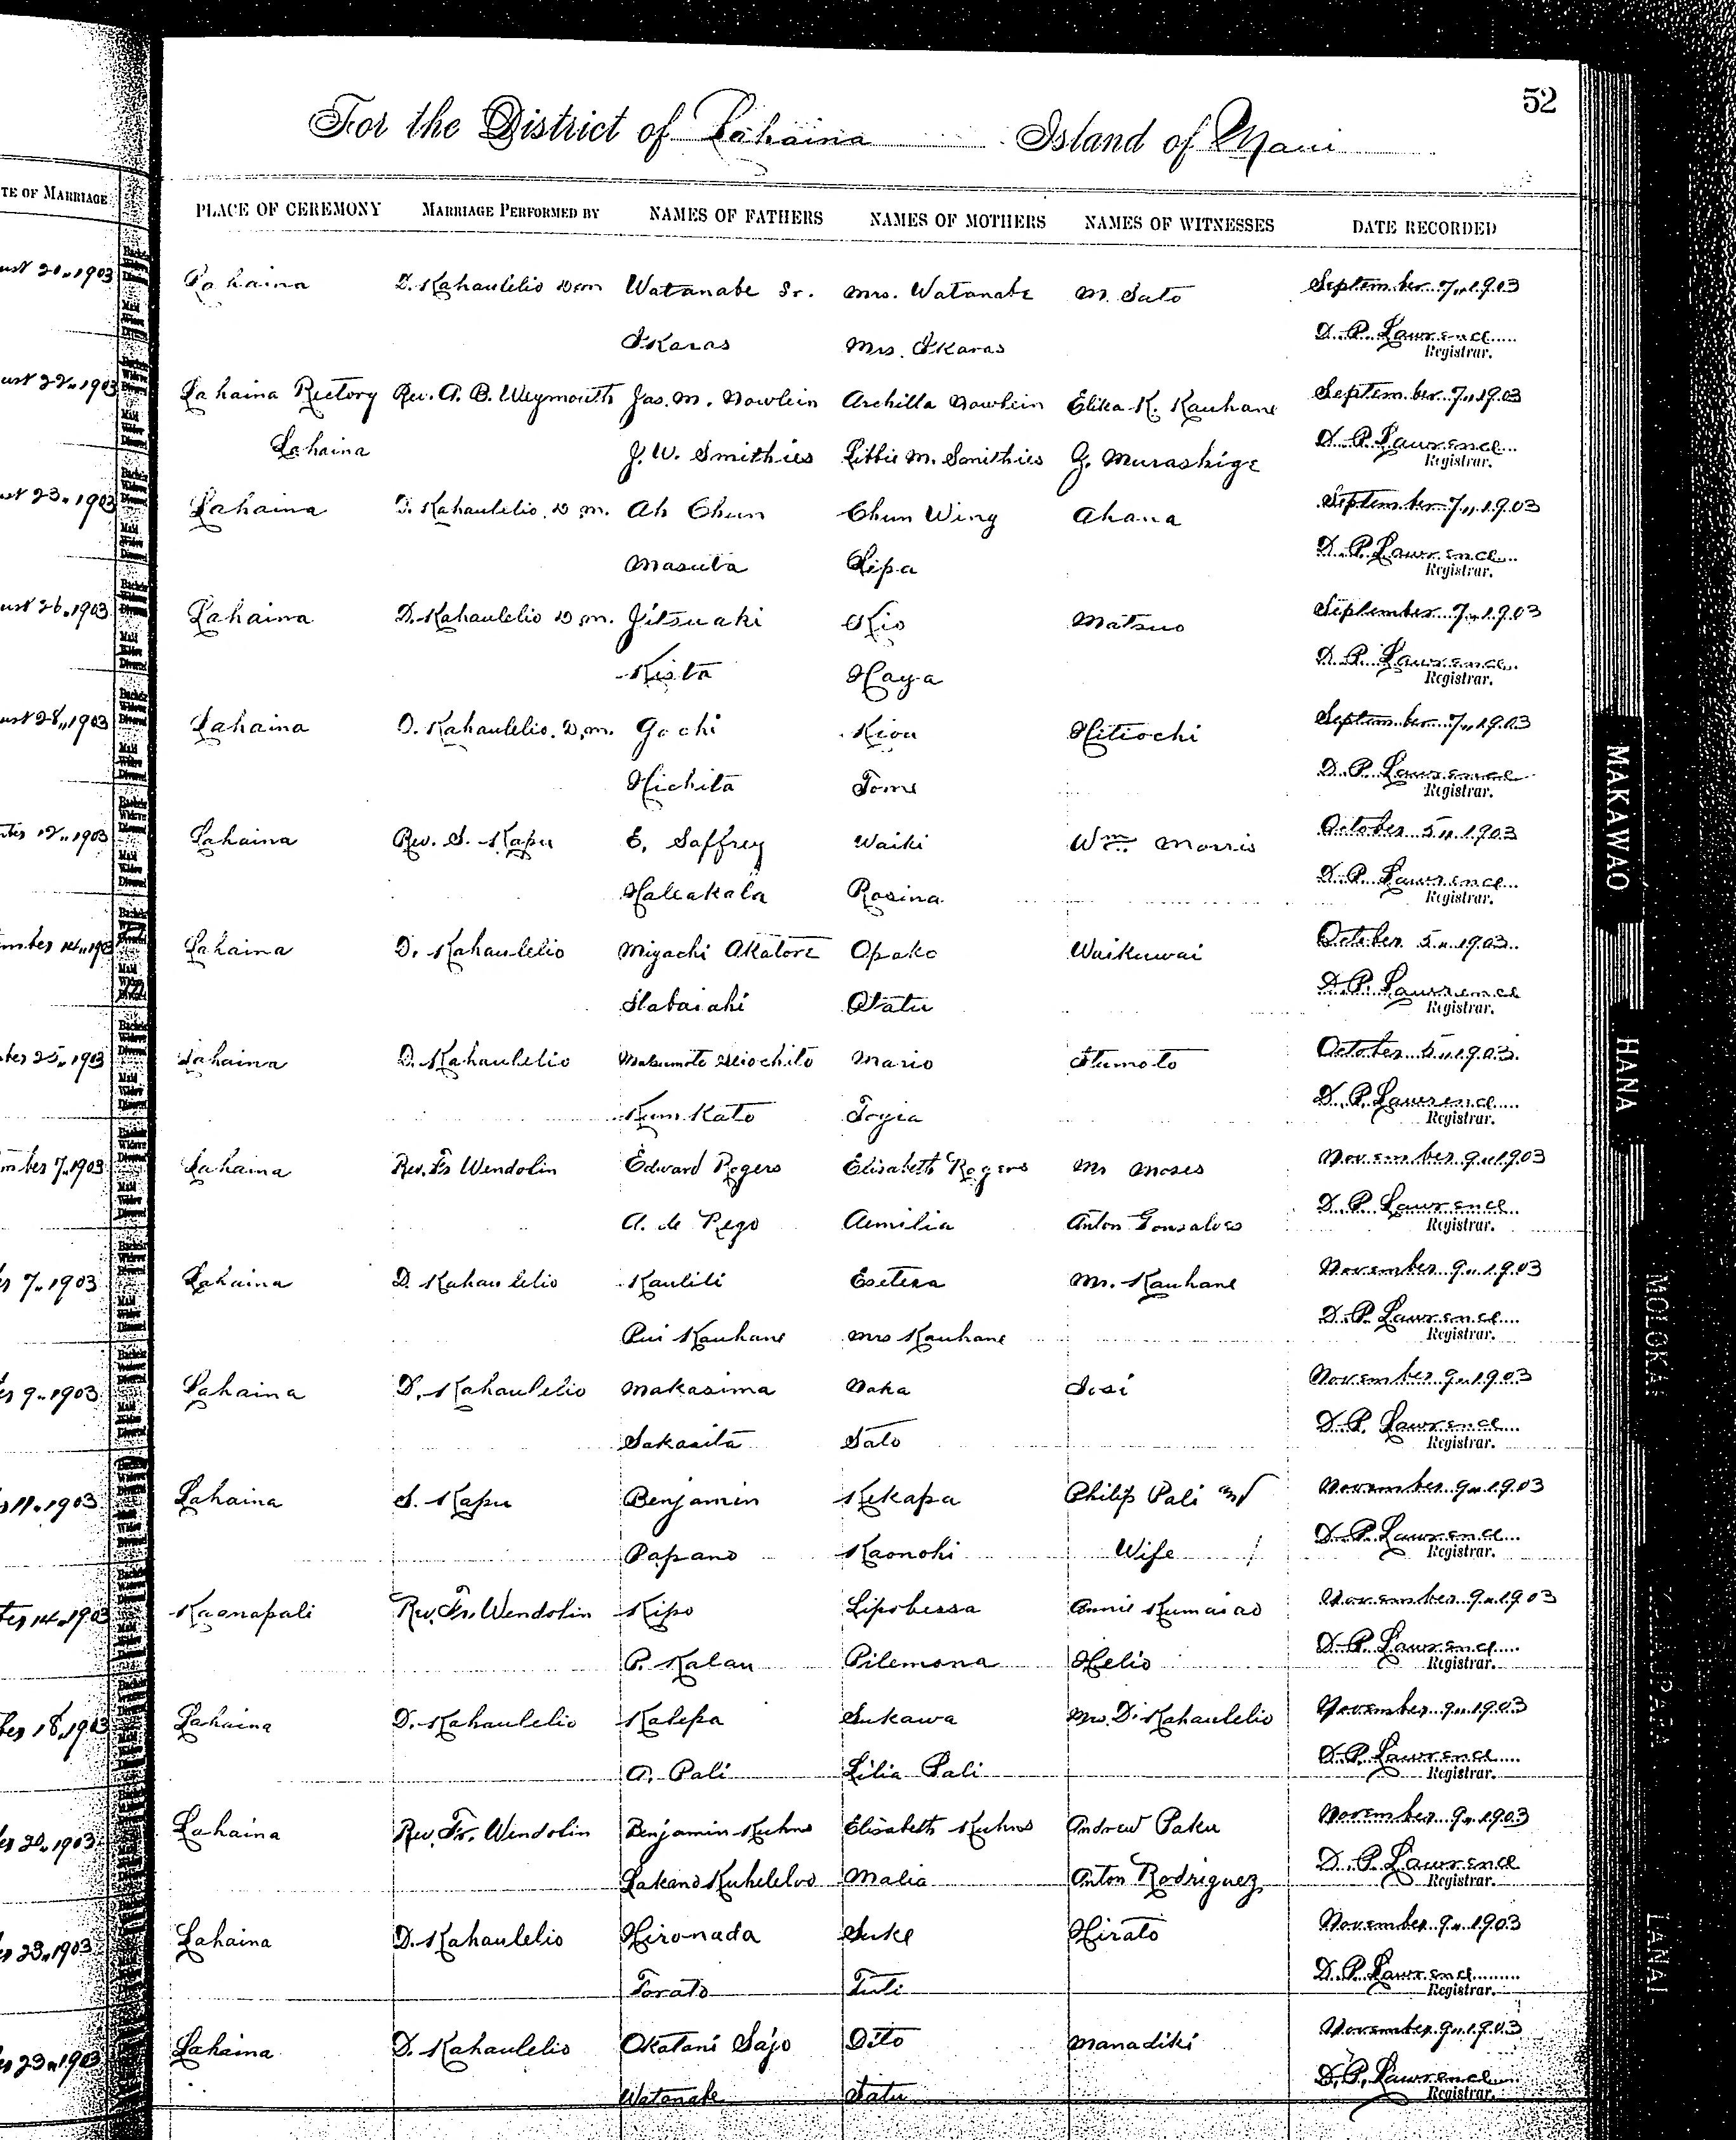 52
For the District of Lahaina Island of Maui
TE OF MARRIAGE PLACE OF CEREMONY MARRIAGE PERFORMED BY NAMES OF FATHERS NAMES OF MOTHERS NAMES OF WITNESSES DATE RECORDED
ust 20, 1903 Lahaina D. Kahaulelio D.M. Watanabe Sr. Mrs. Watanabe M. Sato September 7, 1903
Ikaras Mrs. Ikaras D. P. Lawrence
Registrar.
ust 22, 1903 Lahaina Rectory Rev. A. B. Weymouth Jas. M. Nowlein Archilla Nowlein Elika K. Kauhane September 7, 1903
Lahaina J. W. Smithies Libbie M. Smithies G. Murashige D. P. Lawrence
Registrar.
ust 23, 1903 Lahaina D. Kahaulelio, D.M. Ah Chun Chun Wing Ahana September 7, 1903
Masuta Lipa D. P. Lawrence
Registrar.
ust 26, 1903 Lahaina D. Kahaulelio D.M. Jitsuaki Kio Matsuo September 7, 1903
Kista Haya D. P. Lawrence
Registrar.
ust 28, 1903 Lahaina D. Kahaulelio, D.M. Gochi Kiou Hitiochi September 7, 1903
Hichita Tome D. P. Lawrence
Registrar.
ber 12, 1903 Lahaina Rev. S. Kapu E. Saffrey Waiki Wm. Morris October 5, 1903
Haleakala Rosina D. P. Lawrence
Registrar.
mber 14, 190 Lahaina D. Kahaulelio Miyachi Okatore Opako Waikuwai October 5, 1903
Itabaiahi Otatu D. P. Lawrence
Registrar.
ber 25, 1903 Lahaina D. Kahaulelio Matsumoto Mario Itumoto October 5, 1903
Kum Kato Toyia D. P. Lawrence
Registrar.
mber 7, 1903 Lahaina Rev. Fr Wendolin Edward Rogers Elisabeth Rogers Mr Moses November 9, 1903
A. de Rego Aemilia Anton Gonsalves D. P. Lawrence
Registrar.
7, 1903 Lahaina D. Kahaulelio Kaulili Esetera Mr. Kauhane November 9, 1903
Pui Kauhane Mrs Kauhane D. P. Lawrence
Registrar.
9, 1903 Lahaina D. Kahaulelio Makasima Naka Iosi November 9, 1903
Sakasita Sato D. P. Lawrence
Registrar.
11, 1903 Lahaina S. Kapu Benjamin Kekapa Philip Pali and November 9, 1903
Papano Kaonohi Wife D. P. Lawrence
Registrar.
14, 1903 Kaanapali Rev. Fr. Wendolin Kipo Lipobessa Annie Kumaiao November 9, 1903
P. Kalau Pilemona Helio D. P. Lawrence
Registrar.
ber 18, 1903 Lahaina D. Kahaulelio Kalepa Sukawa Mrs. D. Kahaulelio November 9, 1903
A. Pali Lilia Pali D. P. Lawrence
Registrar.
20, 1903 Lahaina Rev. Fr. Wendolin Benjamin Kuhns Elisabeth Kuhns Andrew Paku November 9, 1903
Lakano Kuheleloo Malia Anton Rodriguez D. P. Lawrence
Registrar.
23, 1903 Lahaina D. Kahaulelio Hironada Suke Hirato November 9, 1903
Torato Tuti D. P. Lawrence
Registrar.
23, 1903 Lahaina D. Kahaulelio Okatani Sajo Dito Manadiki November 9, 1903
Watanabe Tatu D. P. Lawrence
Registrar.
MAKAWAO
HANA
MOLOKAI
LANAI